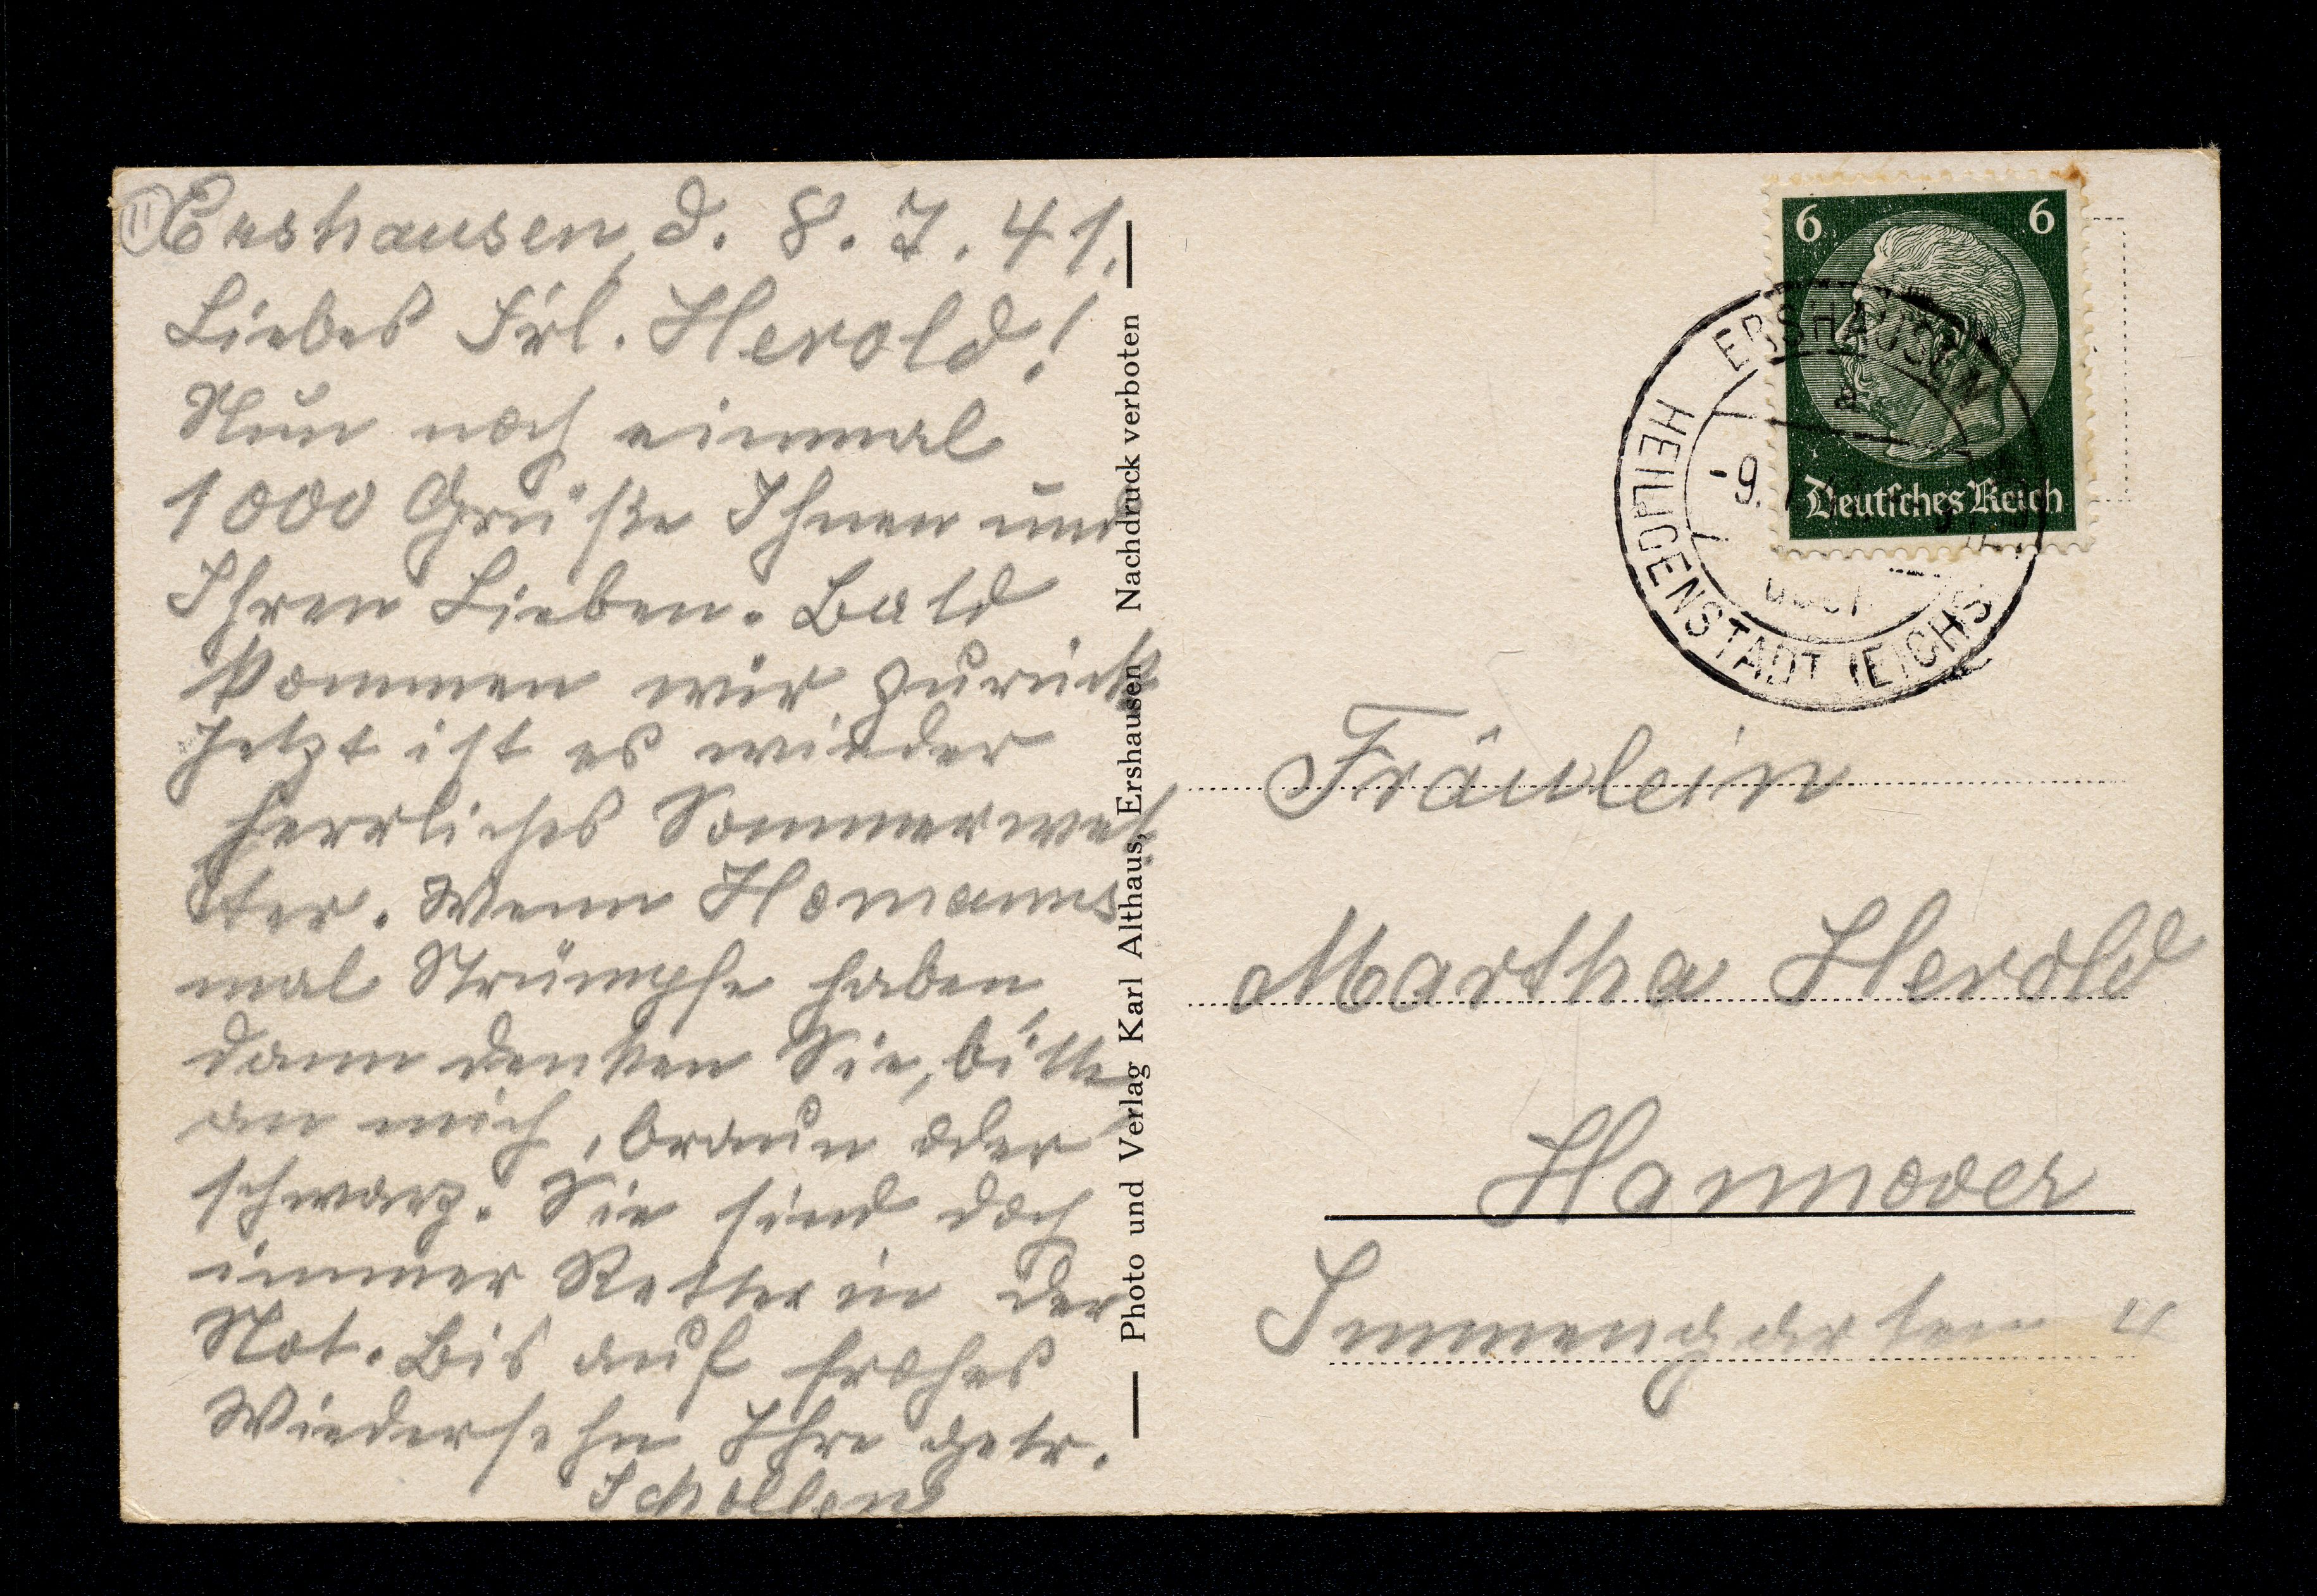 Ershausen, d. 8. 7. 41.
Liebes Frl. Herold!
Nun noch einmal
1000 Grüße Ihnen und
Ihren Lieben. Bald
kommen wir zurück
Jetzt ist es wieder
herrliches Sommerwet-
ter. Wenn Homanns
mal Strümpfe haben,
dann denken Sie, bitte
an mich, braun oder
schwarz. Sie sind doch
immer Retter in der
Not. Bis auf frohes
Wiedersehn Ihre getr.
Photo und Verlag Karl Althaus, Ershausen Nachdruck verboten
6 6
Deutsches Reich
ERSHAUSEN
a
-9.
HEILIGENSTADT (EICHSF
Fräulein
Martha Herold
Hannover
Immengarten